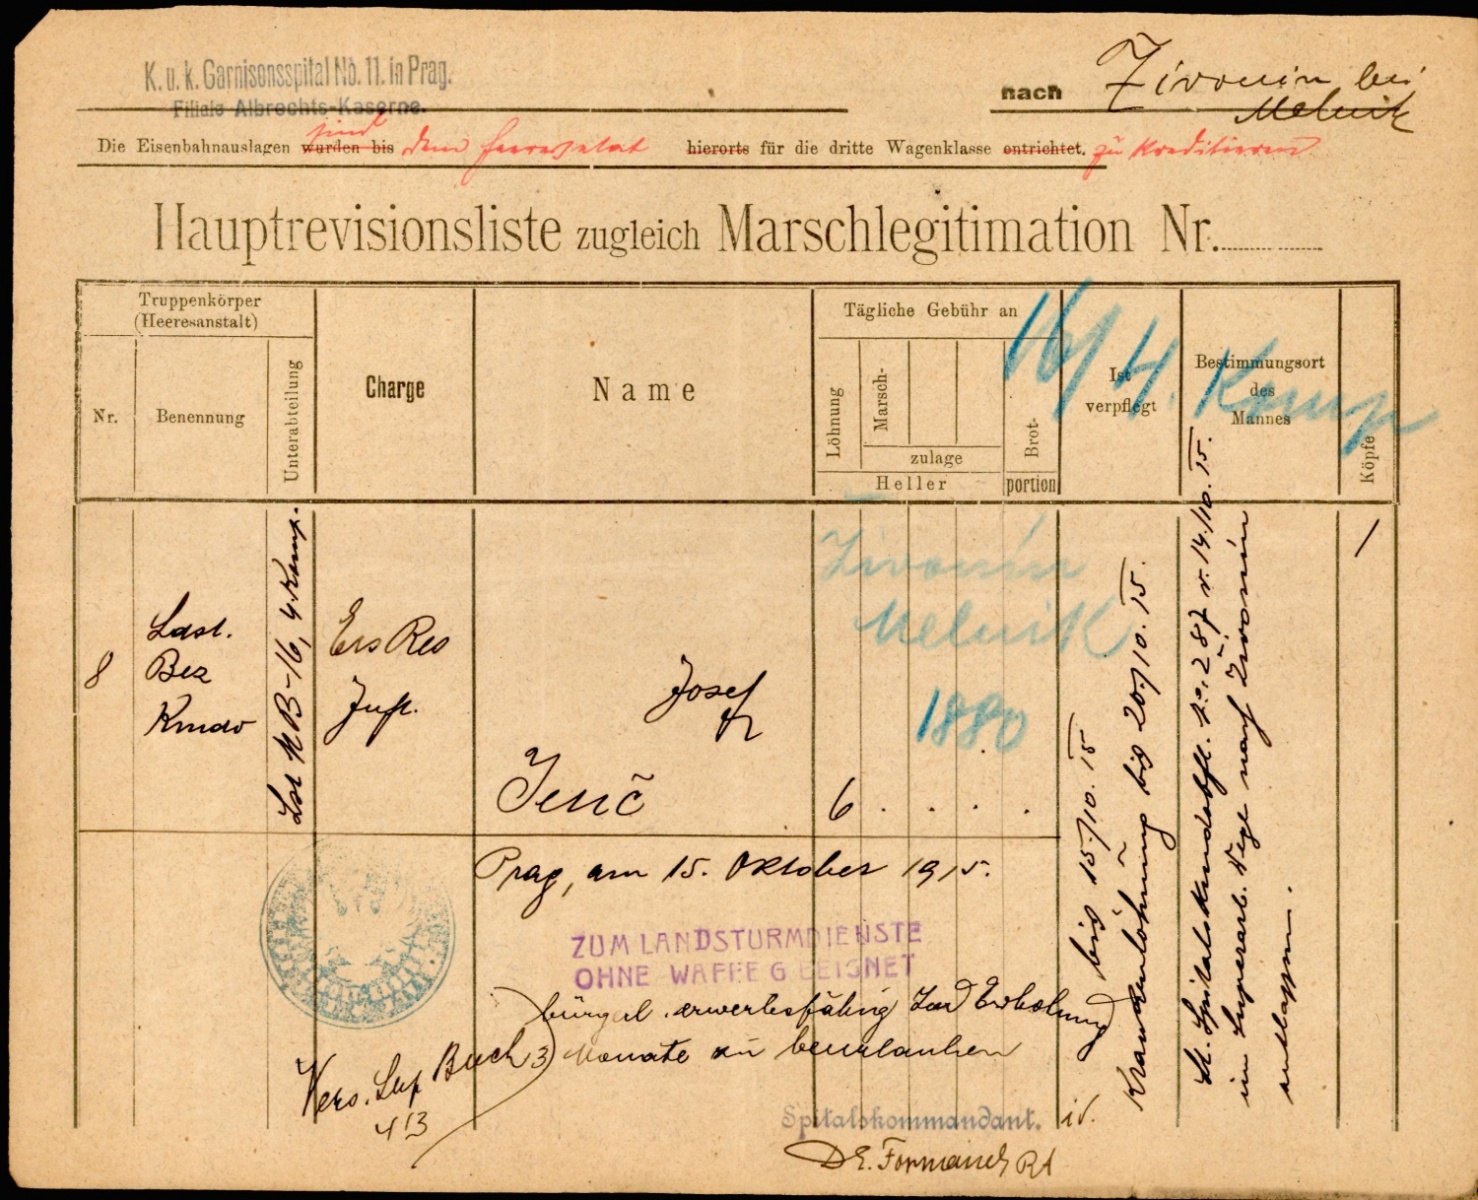 K. u. k. Garnisonsspital No. 11. in Prag.
Filiale Albrechts-Kaserne.
nach Zivonin bei
Melnik
sind
Die Eisenbahnauslagen wurden bis dem hierorts für die dritte Wagenklasse entrichtet. zu kreditieren
Hauptrevisionsliste zugleich Marschlegitimation Nr.
Truppenkörper
(Heeresanstalt)
Nr.
Benennung
Unterabteilung
Charge
Name
Tägliche Gebühr an
Löhnung
Marsch-
zulage
Heller
Brot-
portion
Ist
verpflegt
Bestimmungsort
des
Mannes
Köpfe
16/4. Komp
8
Ldst.
Bez
Kmdo
Lst KB-16, 4. Komp.
Ers Res
Inft.
Josef
Jenč
6 . . . .
Zivonin
Melnik
1880
bis 15/10. 15
Krankenlöhnung bis 20/10. 15.
Lt. Spitalskmdobfl. No. 287 v. 14/10. 15.
im Superarb. Wege nach Zivonin
entlassen.
Prag, am 15. Oktober 1915.
ZUM LANDSTURMDIENSTE
OHNE WAFFE GEEIGNET
bürgerl. erwerbsfähig Zur Erholung
3 Monate zu beurlauben
Sup Buch
413
Spitalskommandant. iV.
Dr. Formanek RA